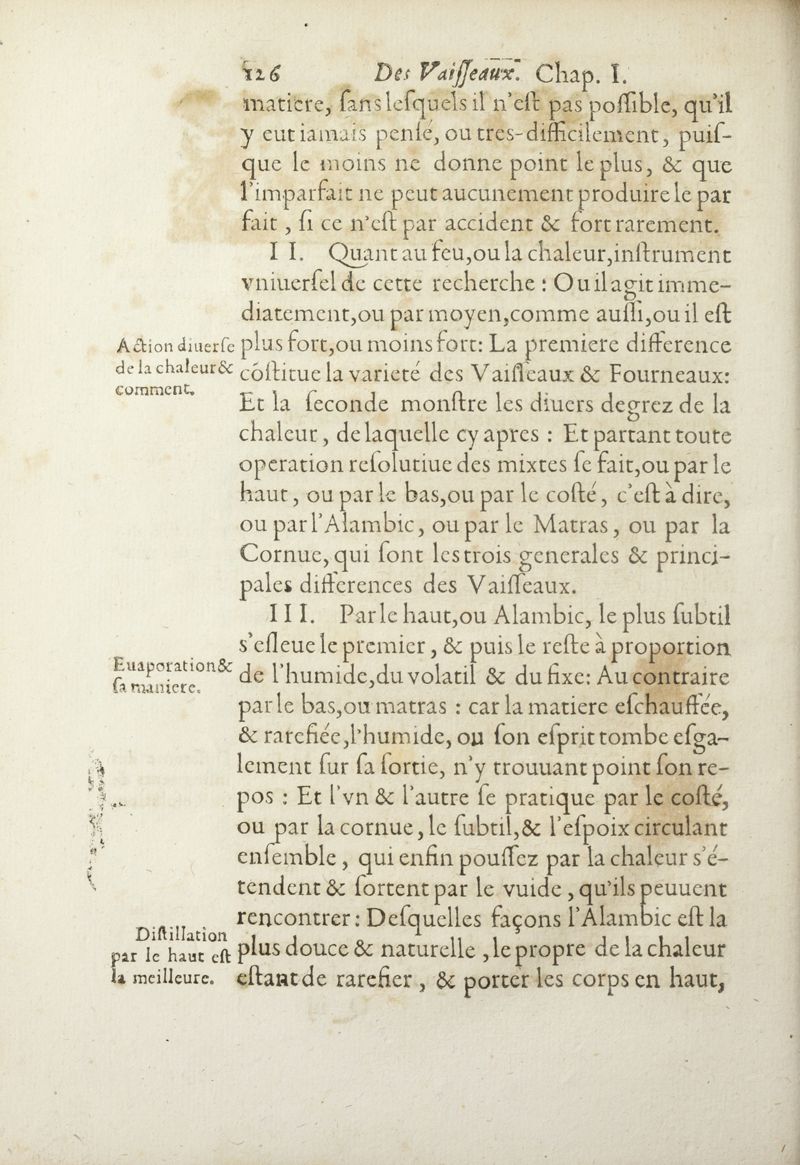 126 Des Vaisseaux. Chap. I.
matiere, sans lesquels il n'est pas possible, qu'il
y eut iamais pensé, ou tres-difficilement, puis-
que le moins ne donne point le plus, & que
l'imparfait ne peut aucunement produire le par
fait, si ce n'est par accident & fort rarement.
II. Quant au feu, ou la chaleur, instrument
vniuersel de cette recherche : Ou il agit imme-
diatement, ou par moyen, comme aussi, ou il est
Action diuerse
de la chaleur &
comment.
plus fort, ou moins fort : La premiere difference
cõstitue la varieté des Vaisseaux & Fourneaux:
Et la seconde monstre les diuers degrez de la
chaleur, de laquelle cy apres : Et partant toute
operation resolutiue des mixtes se fait, ou par le
haut, ou par le bas, ou par le costé, c'est à dire,
ou par l'Alambic, ou par le Matras, ou par la
Cornue, qui sont les trois generales & princi-
pales differences des Vaisseaux.
III. Par le haut, ou Alambic, le plus subtil
s'esleue le premier, & puis le reste à proportion
Euaporation &
sa maniere.
de l'humide, du volatil & du fixe: Au contraire
par le bas, ou matras : car la matiere eschauffée,
& rarefiée, l'humide, ou son esprit tombe esga-
lement sur sa sortie, n'y trouuant point son re-
pos : Et l'vn & l'autre se pratique par le costé,
ou par la cornue, le subtil, & l'espoix circulant
ensemble, qui enfin poussez par la chaleur s'é-
tendent & sortent par le vuide, qu'ils peuuent
rencontrer : Desquelles façons l'Alambic est la
Distillation
par le haut est
la meilleure.
plus douce & naturelle, le propre de la chaleur
estant de rarefier, & porter les corps en haut,